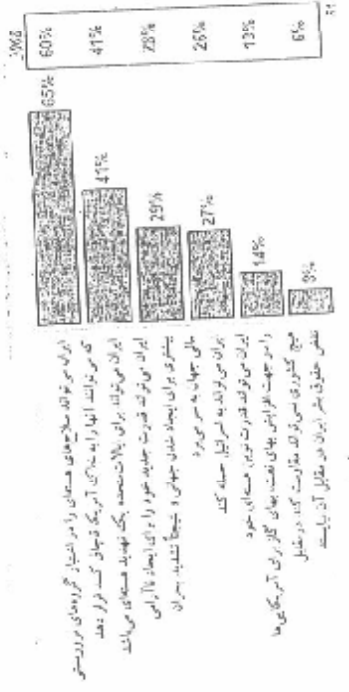 2008
65%
60%
41%
41%
29%
28%
27%
26%
14%
13%
6%
ایران می تواند سلاحهای هسته‌ای را در اختیار گروه‌های تروریستی
که می تواند آنها را به خاک آمریکا قاچاق کنند قرار دهد
ایران می تواند برای ایالات متحده یک تهدید هسته‌ای می باشد
ایران می تواند قدرت جدید خود را برای ایجاد ناآرامی
بیشتری برای ایجاد شدن جهانی و نتیجتاً تشدید بحران
مالی جهان به سر می برد
ایران می تواند به اسرائیل حمله کند
ایران می تواند قدرت نوین هسته‌ای خود
را در جهت افزایش بهای نفت، بهای گاز برای آمریکایی ها
هیچ کشوری نمی تواند مقاومت کند در مقابل
نقض حقوق بشر ایران در مقابل آن بایستد
51